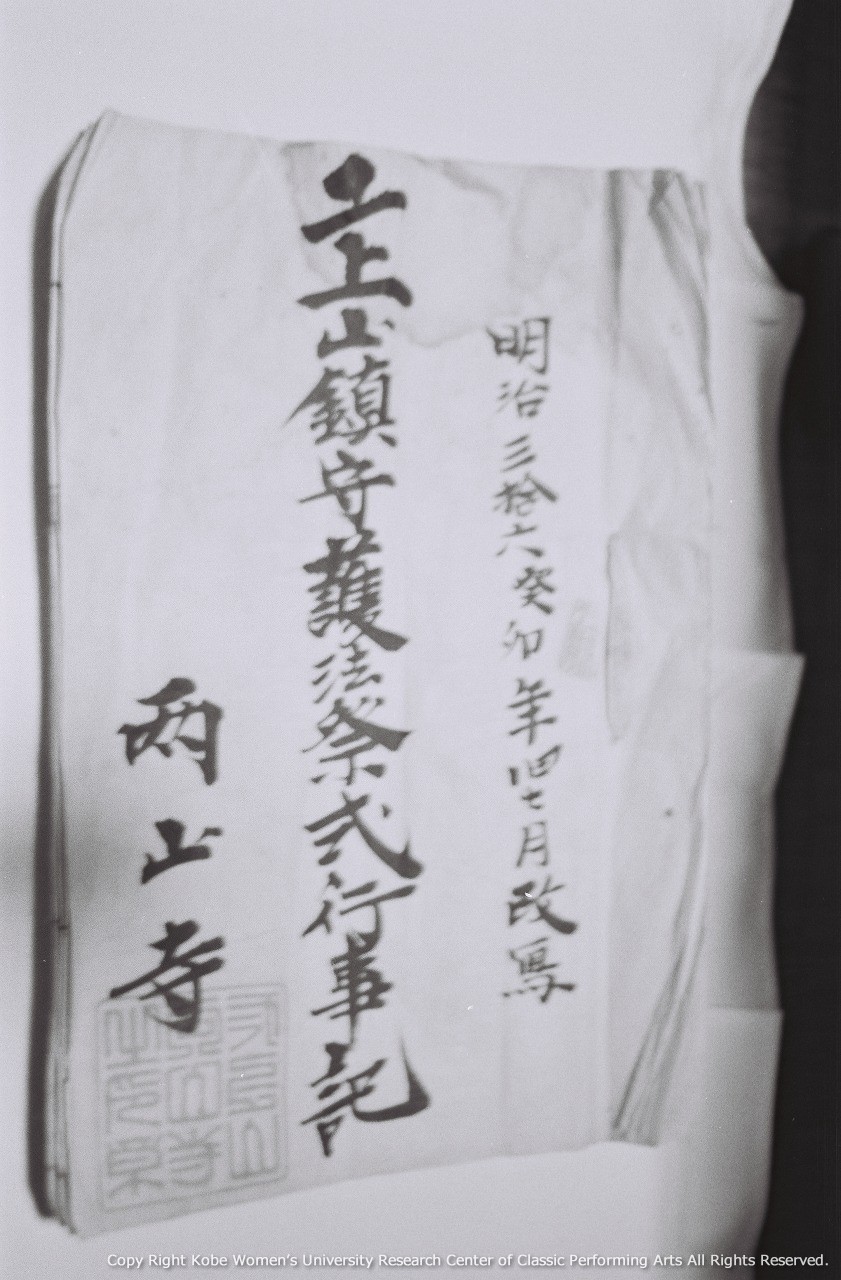 明治三拾六癸卯年旧七月改寫
二上山鎮守護法祭式行事記
两山寺
Copy Right Kobe Women's University Research Center of Classic Performing Arts All Rights Reserved.